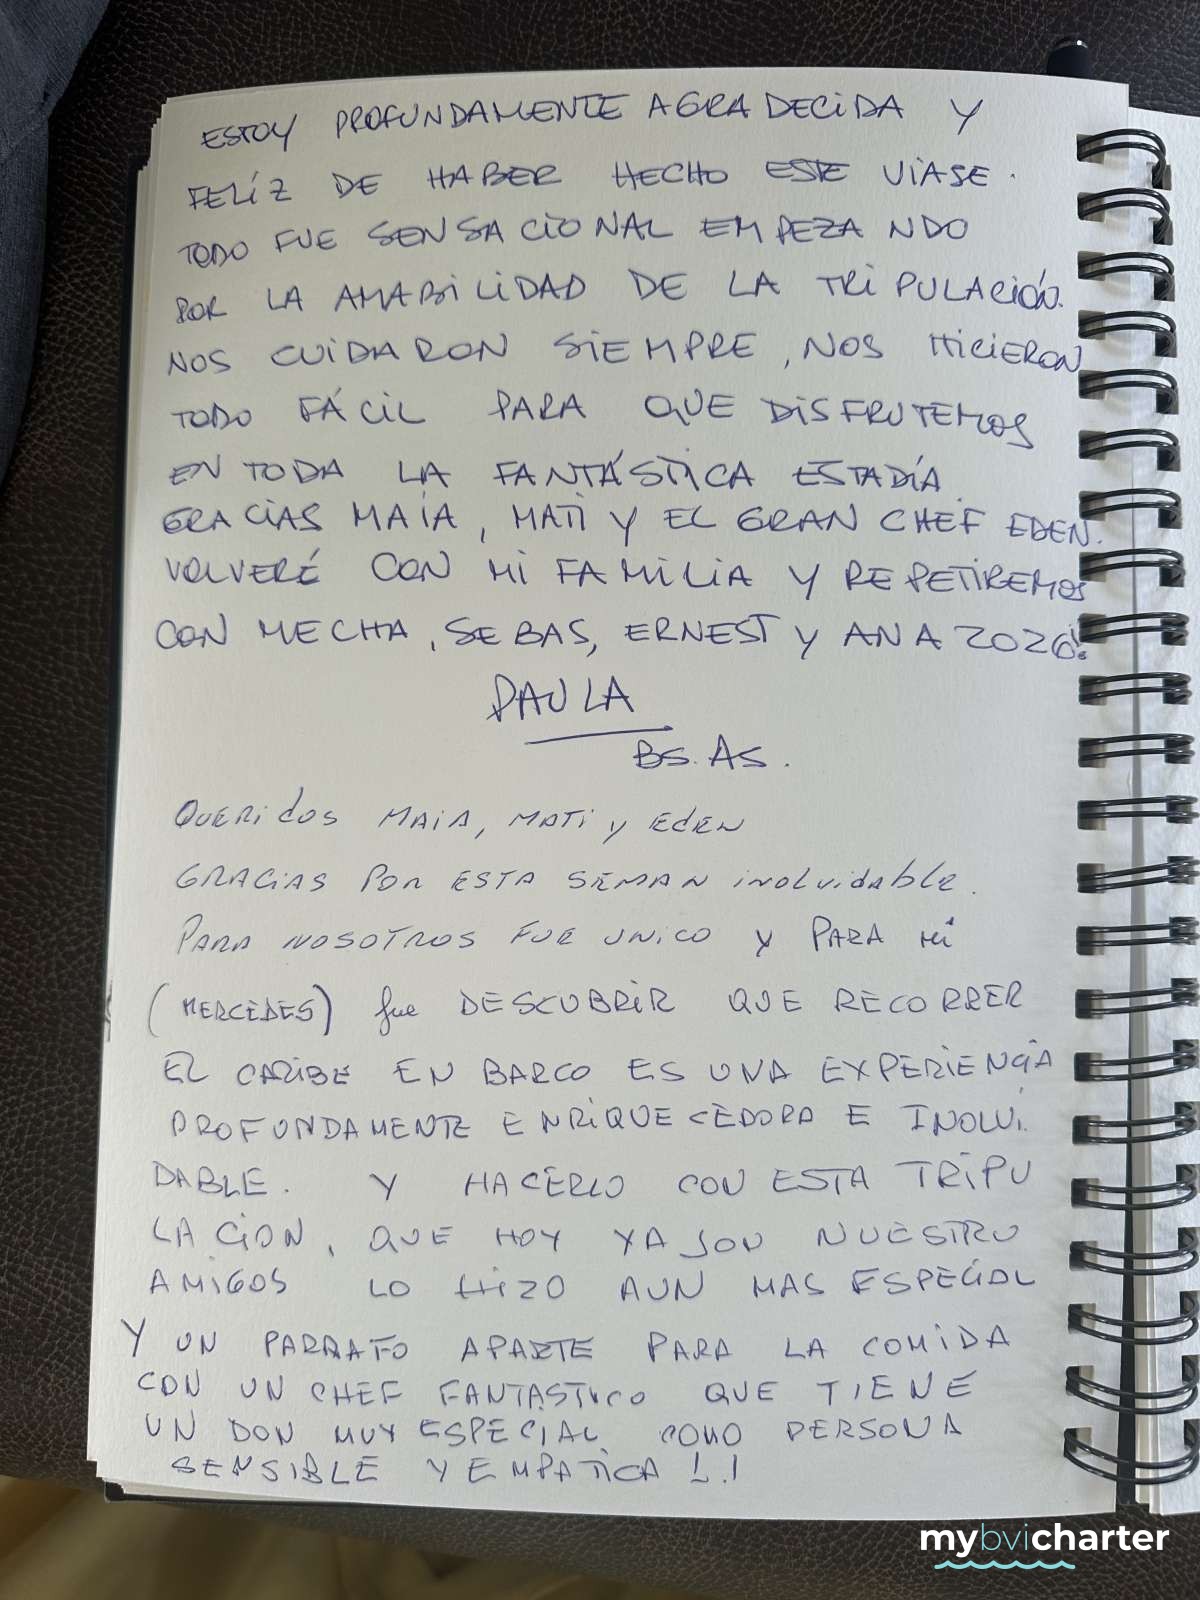 ESTOY PROFUNDAMENTE AGRADECIDA Y
FELÍZ DE HABER HECHO ESTE VIAJE.
TODO FUE SENSACIONAL EMPEZANDO
POR LA AMABILIDAD DE LA TRIPULACIÓN.
NOS CUIDARON SIEMPRE, NOS HICIERON
TODO FÁCIL PARA QUE DISFRUTEMOS
EN TODA LA FANTÁSTICA ESTADÍA.
GRACIAS MAIA, MATI Y EL GRAN CHEF EDEN.
VOLVERÉ CON MI FAMILIA Y REPETIREMOS
CON MECHA, SEBAS, ERNEST Y ANA 2026!
PAULA
BS. AS.
QUERIDOS MAIA, MATI Y EDEN
GRACIAS POR ESTA SEMAN INOLVIDABLE.
PARA NOSOTROS FUE UNICO Y PARA MI
(MERCEDES) fue DESCUBRIR QUE RECORRER
EL CARIBE EN BARCO ES UNA EXPERIENCIA
PROFUNDAMENTE ENRIQUECEDORA E INOLVI
DABLE. Y HACERLO CON ESTA TRIPU
LACION, QUE HOY YA SON NUESTRO
AMIGOS LO HIZO AUN MAS ESPECIAL
Y UN PARRAFO APARTE PARA LA COMIDA
CON UN CHEF FANTASTICO QUE TIENE
UN DON MUY ESPECIAL COMO PERSONA
SENSIBLE Y EMPATICA !.!
mybvicharter